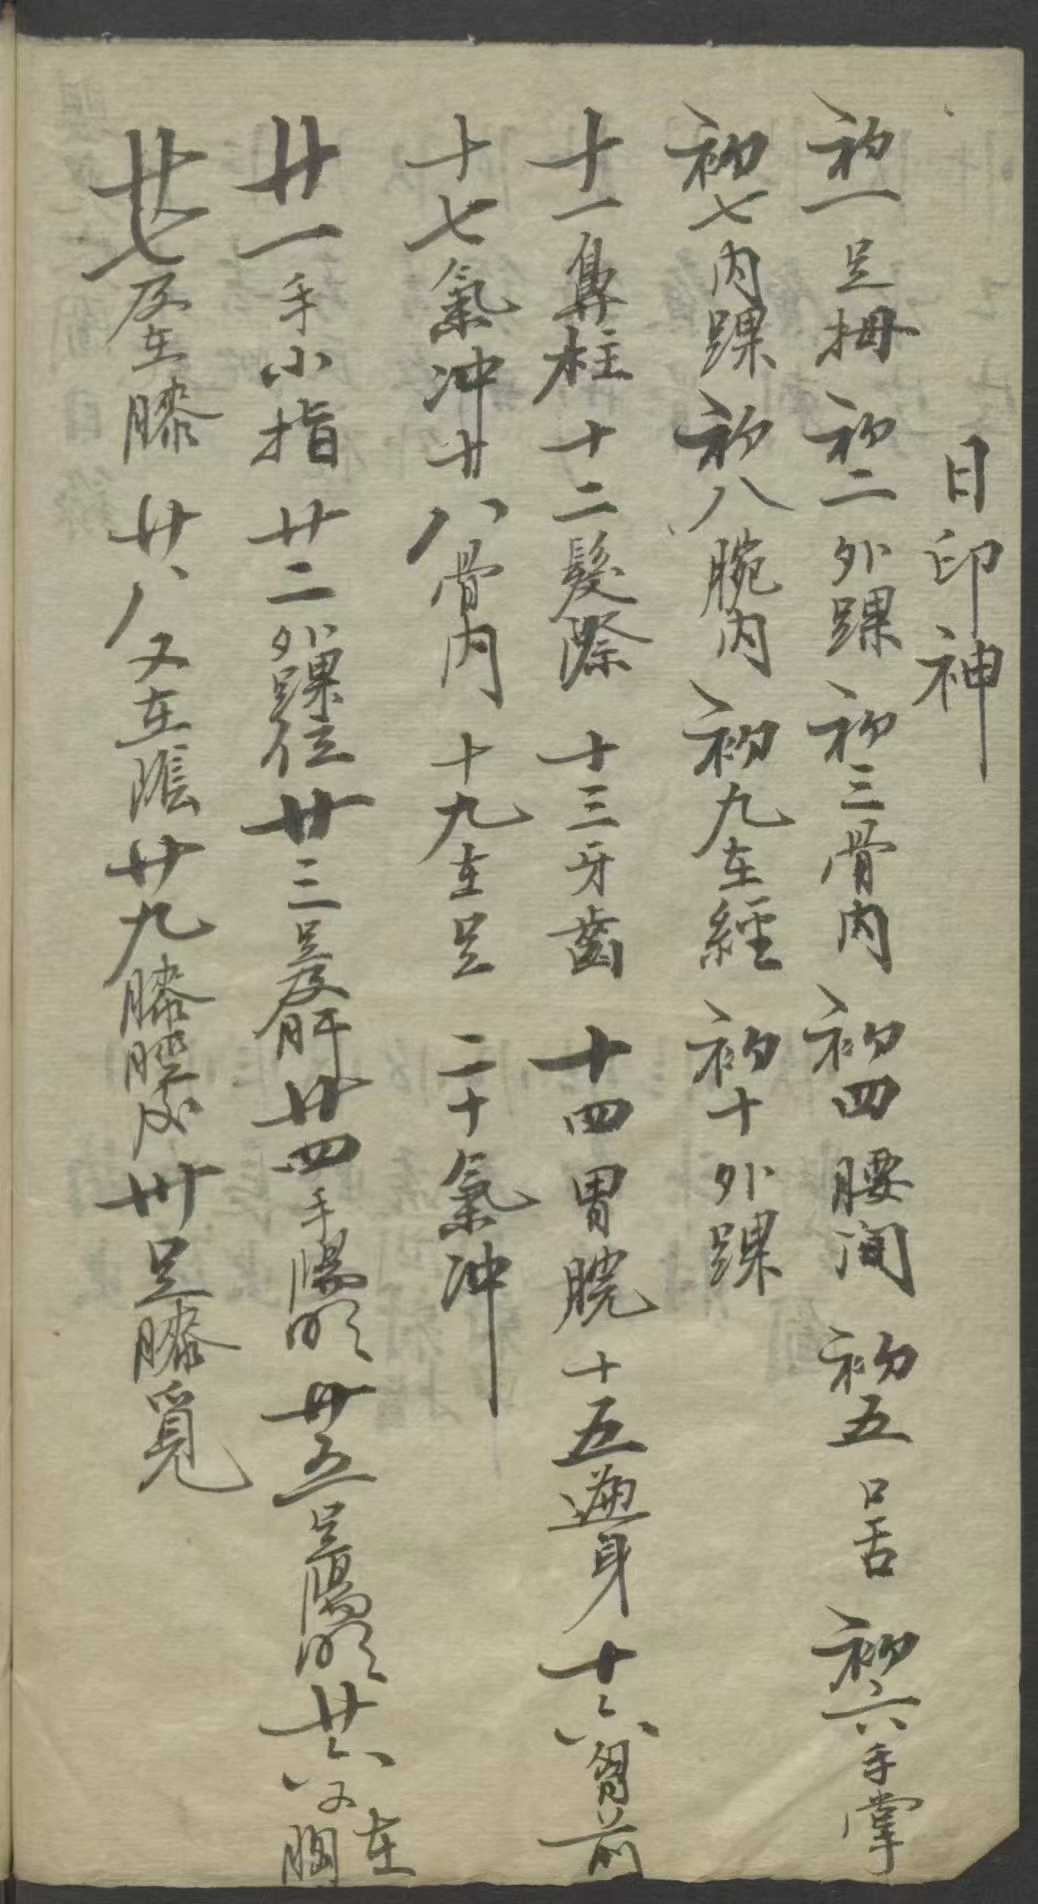 日印神
初一足拇 初二外踝 初三骨内 初四腰間 初五口舌 初六手掌
初七内踝 初八腕内 初九在經 初十外踝
十一鼻柱 十二髮際 十三牙齒 十四胃脘 十五遍身 十六胷前
十七氣冲 廿八骨内 十九在足 二十氣冲
廿一手小指 廿二外踝位 廿三足及肝 廿四手陽明 廿五足陽明 廿六又在胸
廿七及在膝 廿八又在陰 廿九膝脛及 卅足膝覓